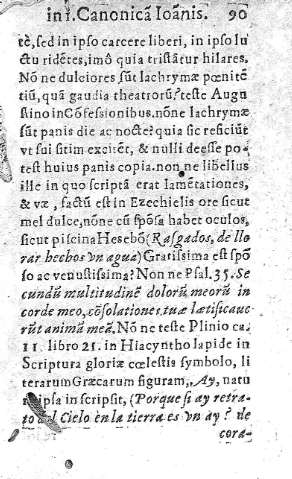 in 1. Canonicã Ioãnis. 90
tè, sed in ipso carcere liberi, in ipso lu
ctu ridẽtes, imò quia tristãtur hilares.
Nõ ne dulciores sũt lachrymæ pœnitẽ
tiũ, quã gaudia theatrorũ? teste Augu
stino in Cõfessionibus. nõne lachrymæ
sũt panis die ac nocte? quia sic reficiũt
vt sui sitim excitẽt, & nulli deesse po-
test huius panis copia. non ne libellus
ille in quo scriptã erat lamẽtationes,
& væ, factũ est in Ezechielis ore sicut
mel dulce, nõne cũ spõsa habet oculos,
sicut piscina Hesebõ (Rasgados, de llo
rar hechos vn agua) Gratissima est spõ
so ac venustissima? Non ne Psal. 35. Se
cundũ multitudinẽ dolorũ meorũ in
corde meo, cõsolationes tuæ lætificaue-
rũt animã meã. Nõ ne teste Plinio ca.
11. libro 21. in Hiacyntho lapide in
Scriptura gloriæ cœlestis symbolo, li
terarum Græcarum figuram, Ay, natu
ipsa in scripsit, (Porque si ay retra-
to del Cielo en la tierra es vn ay? de
cora-